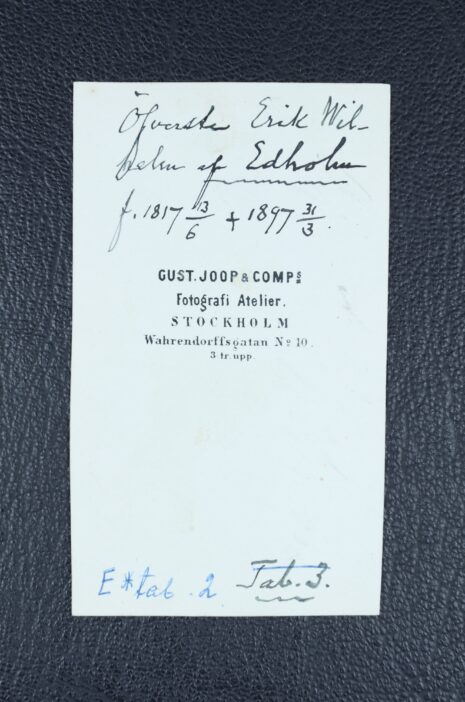 Öfverste Erik Wil-
helm af Edholm
f. 1817 13/6 + 1897 31/3.
GUST. JOOP & COMPS
Fotografi Atelier.
STOCKHOLM
Wahrendorffsgatan No 10.
3 tr. upp.
E * tab. 2 Tab. 3.